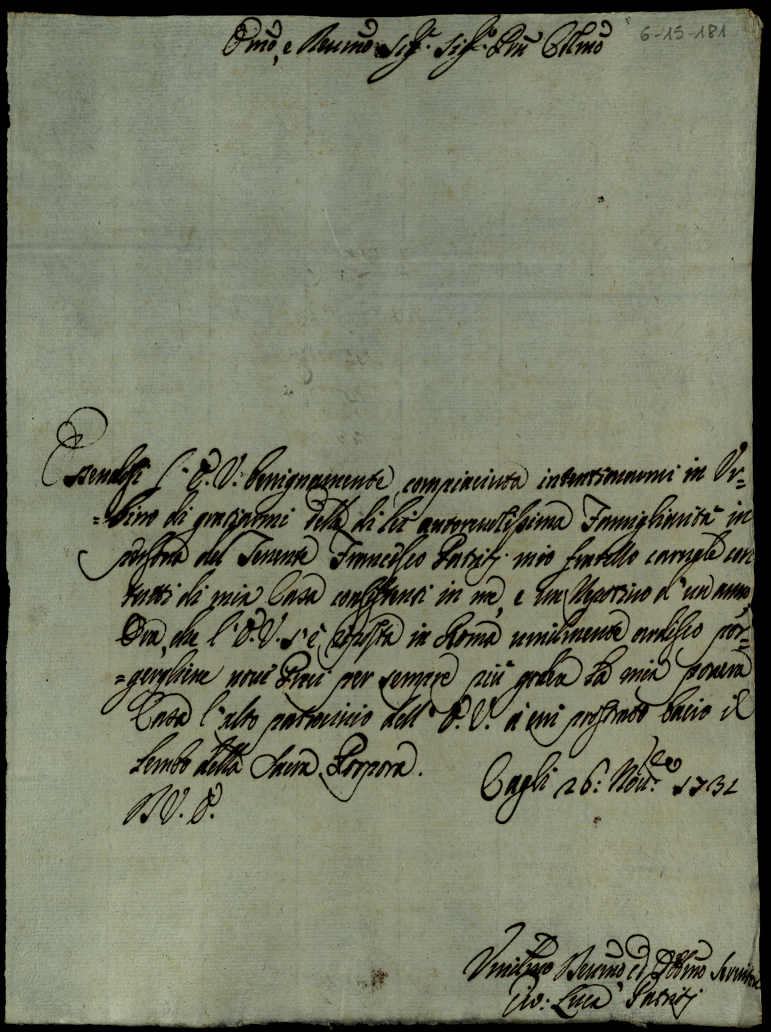 6-15-181
Emo, e Revmo Sigr. Sigr. Pne Colmo
Essendosi l'E. V. benignamente compiaciuta intentionarmi in Ur=
=bino di gratiarmi della di lei autorevolissima Famigliarità in
persona del Tenente Francesco Patritij mio fratello carnale con
tutti di mia Casa consistenti in me, e un Nepotino d'un anno,
Ora, che l'E. V. s'è in Roma umilmente ardisco por=
=gergliene nove Preci per sempre più goder la mia povera
Casa l'alto patrocinio dell'E. V. a cui prostrato bacio il
Lembo della Sacra Porpora.
Cagli 26: Novre 1731
D V. E.
Umilmo Devmo ed Obbmo Servitore
Gio: Luca Patritij